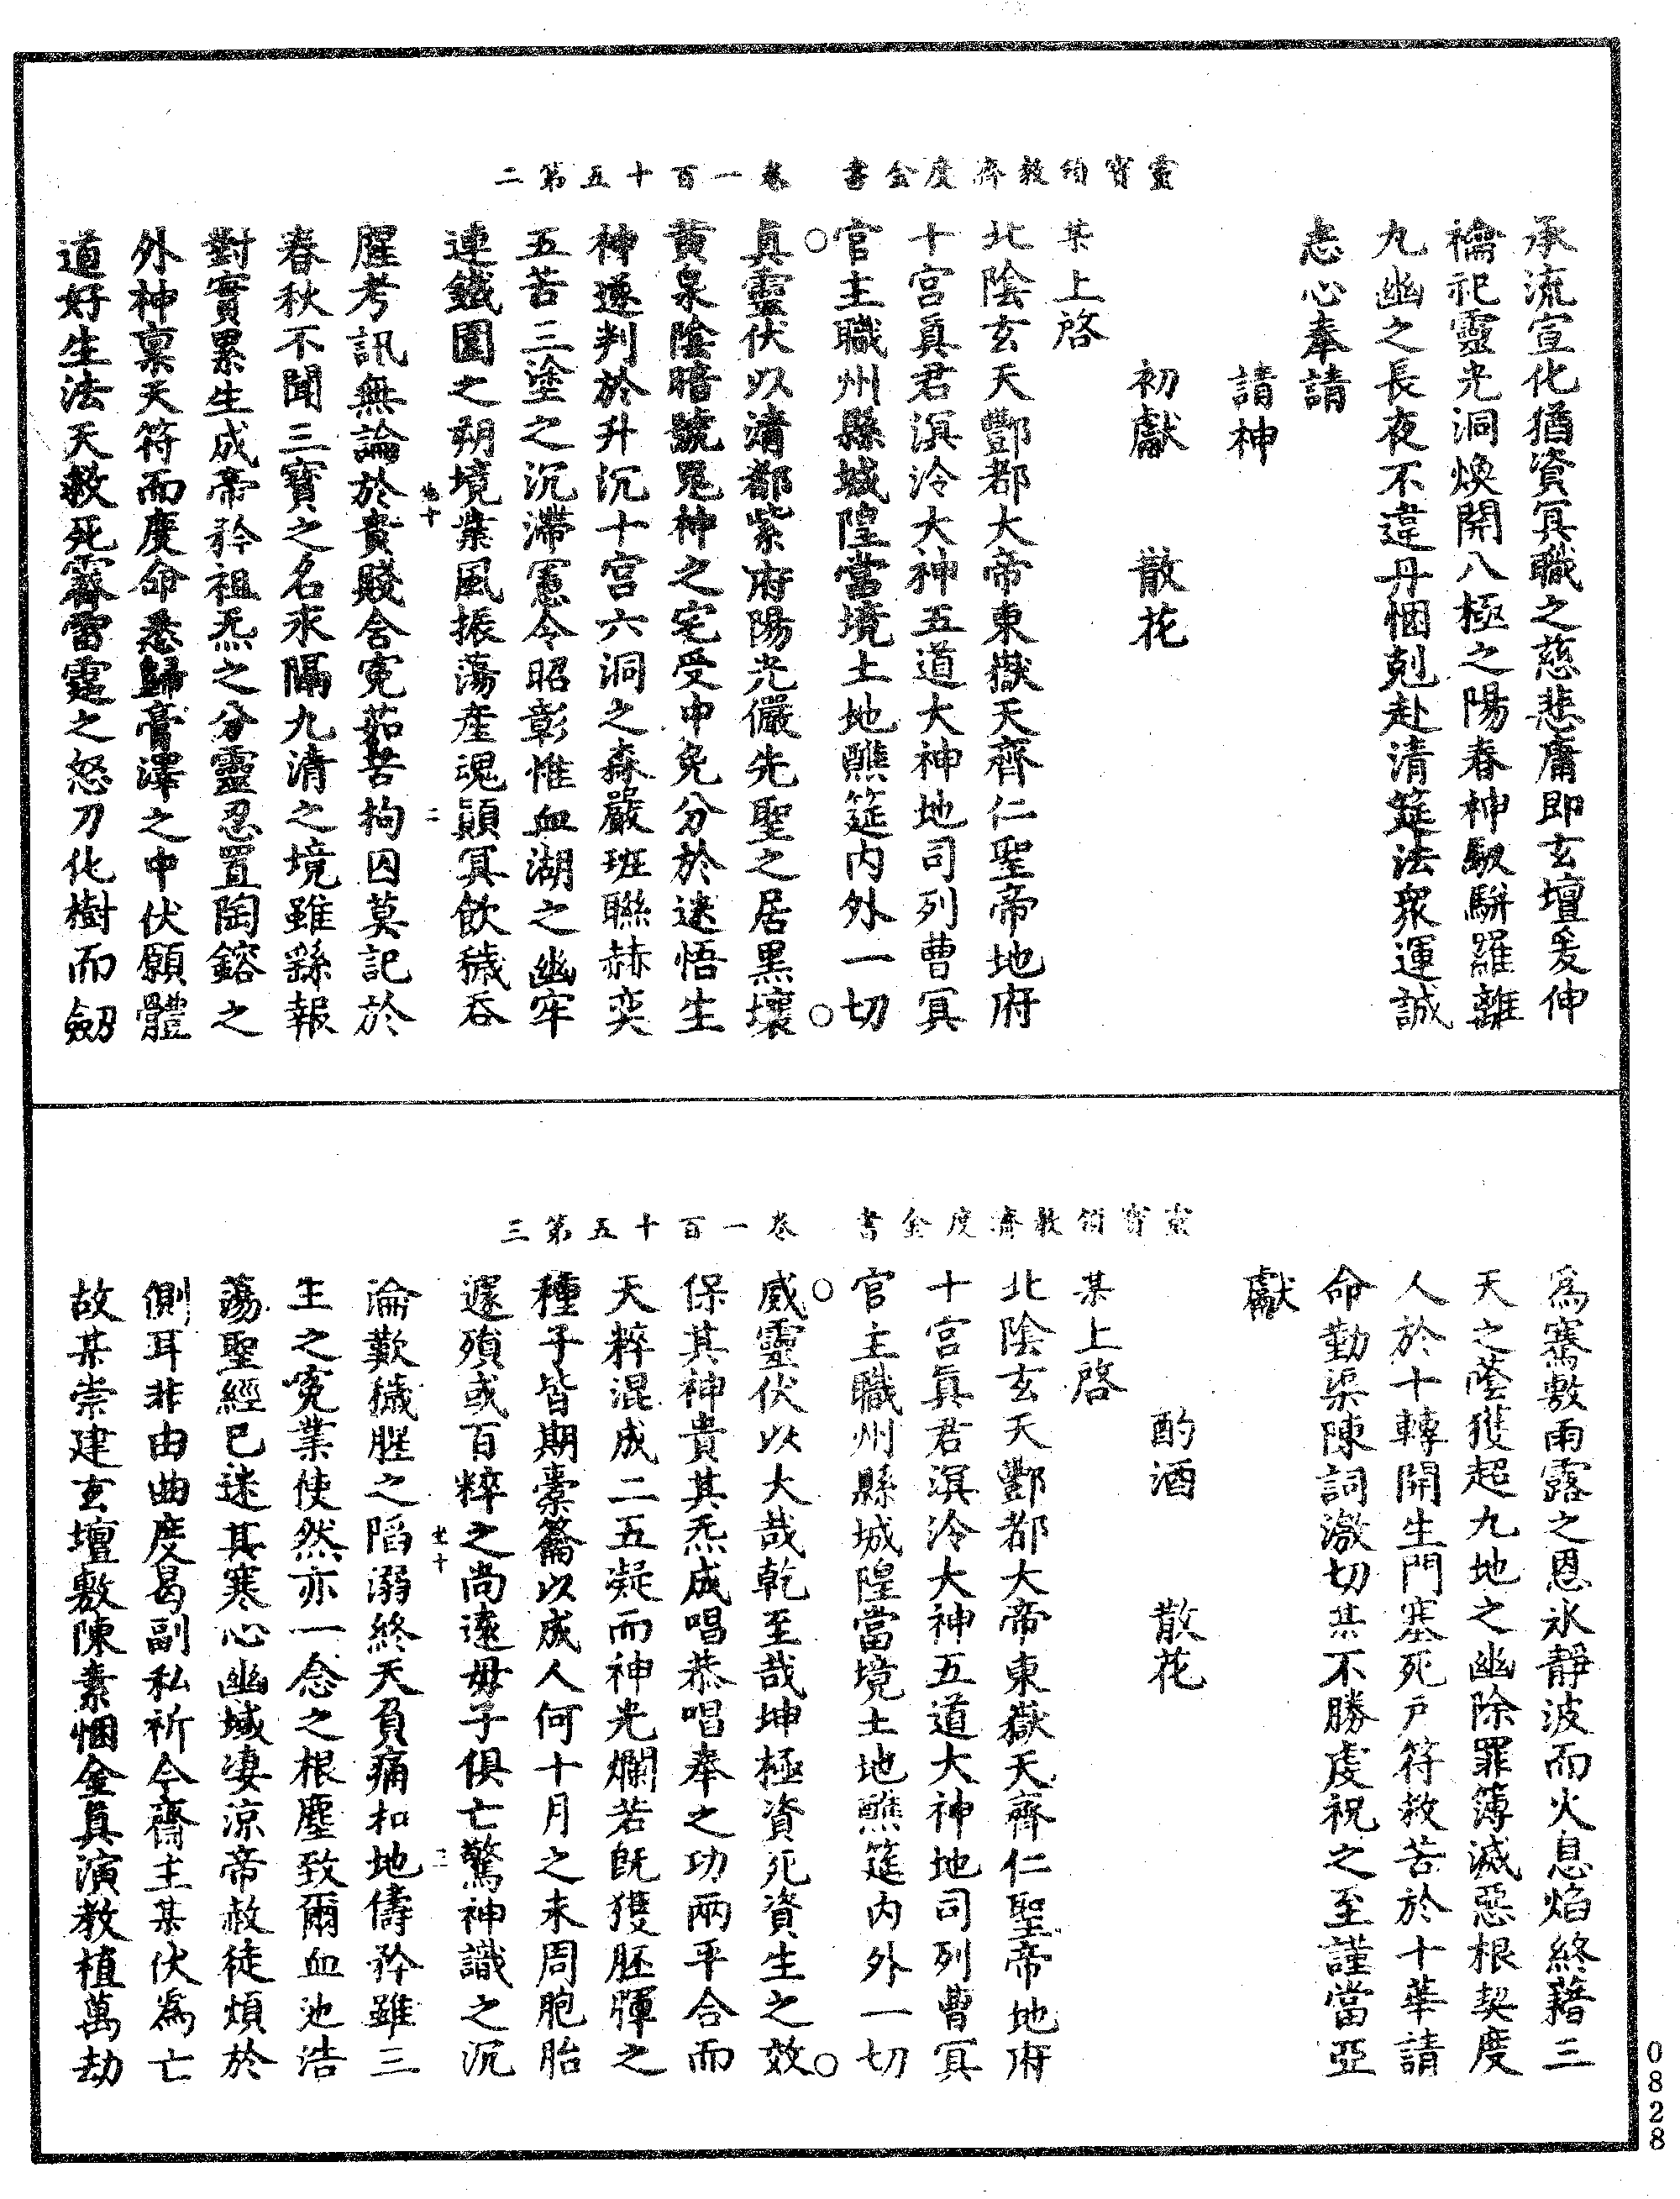 靈寶領教濟度金書　卷一百十五第二
承流宣化猶資冥職之慈悲庸即玄壇爰伸
禬祀靈光洞煥開八極之陽春神馭駢羅離
九幽之長夜不違丹悃剋赴清筵法衆運誠
恚心奉請
請神
初獻　散花
某上啓
北陰玄天酆都大帝東嶽天齊仁聖帝地府
十宮眞君溟泠大神五道大神地司列曹冥
官主職州縣城隍當境土地醮筵內外一切
眞靈伏以清都紫府陽光儼先聖之居黑壤
黃泉陰暗號鬼神之宅受申免分於迷悟生
神遂判於升沉十宮六洞之森嚴班聯赫奕
五苦三塗之沉滯憲令昭彰惟血湖之幽牢
連鐵圍之朔境業風振蕩産魂顛冥飲穢吞
腥考訊無論於貴賤含寃茹苦拘囚莫記於
春秋不聞三寶之名永隔九清之境雖繇報
對實累生成帝矜祖炁之分靈忍置陶鎔之
外神稟天符而度命悉歸膏澤之中伏願體
道好生法天救死霽雷霆之怒刀化樹而劒
靈寶領教濟度金書　卷一百十五第三
爲騫敷雨露之恩氷靜波而火息焰終藉三
天之蔭獲超九地之幽除罪簿滅惡根契度
人於十轉開生門塞死戶符救苦於十華請
命勤渠陳詞激切某不勝虔祝之至謹當亞
獻
酌酒　散花
某上啓
北陰玄天酆都大帝東嶽天齊仁聖帝地府
十宮眞君溟泠大神五道大神地司列曹冥
官主職州縣城隍當境土地醮筵內外一切
威靈伏以大哉乾至哉坤極資死資生之效
保其神貴其炁成唱恭唱奉之功兩平合而
天粹混成二五凝而神光爛若旣獲胚腪之
種子皆期橐籥以成人何十月之未周胞胎
遽殞或百粹之尚遠毋子俱亡驚神識之沉
淪歎穢腥之陷溺終天負痛扣地儔矜雖三
生之寃業使然亦一念之根塵致爾血池浩
蕩聖經已迷其寒心幽域凄涼帝赦徒煩於
側耳非由曲度曷副私祈今齋主某伏爲亡
故某崇建玄壇敷陳素悃金眞演教植萬劫
0828